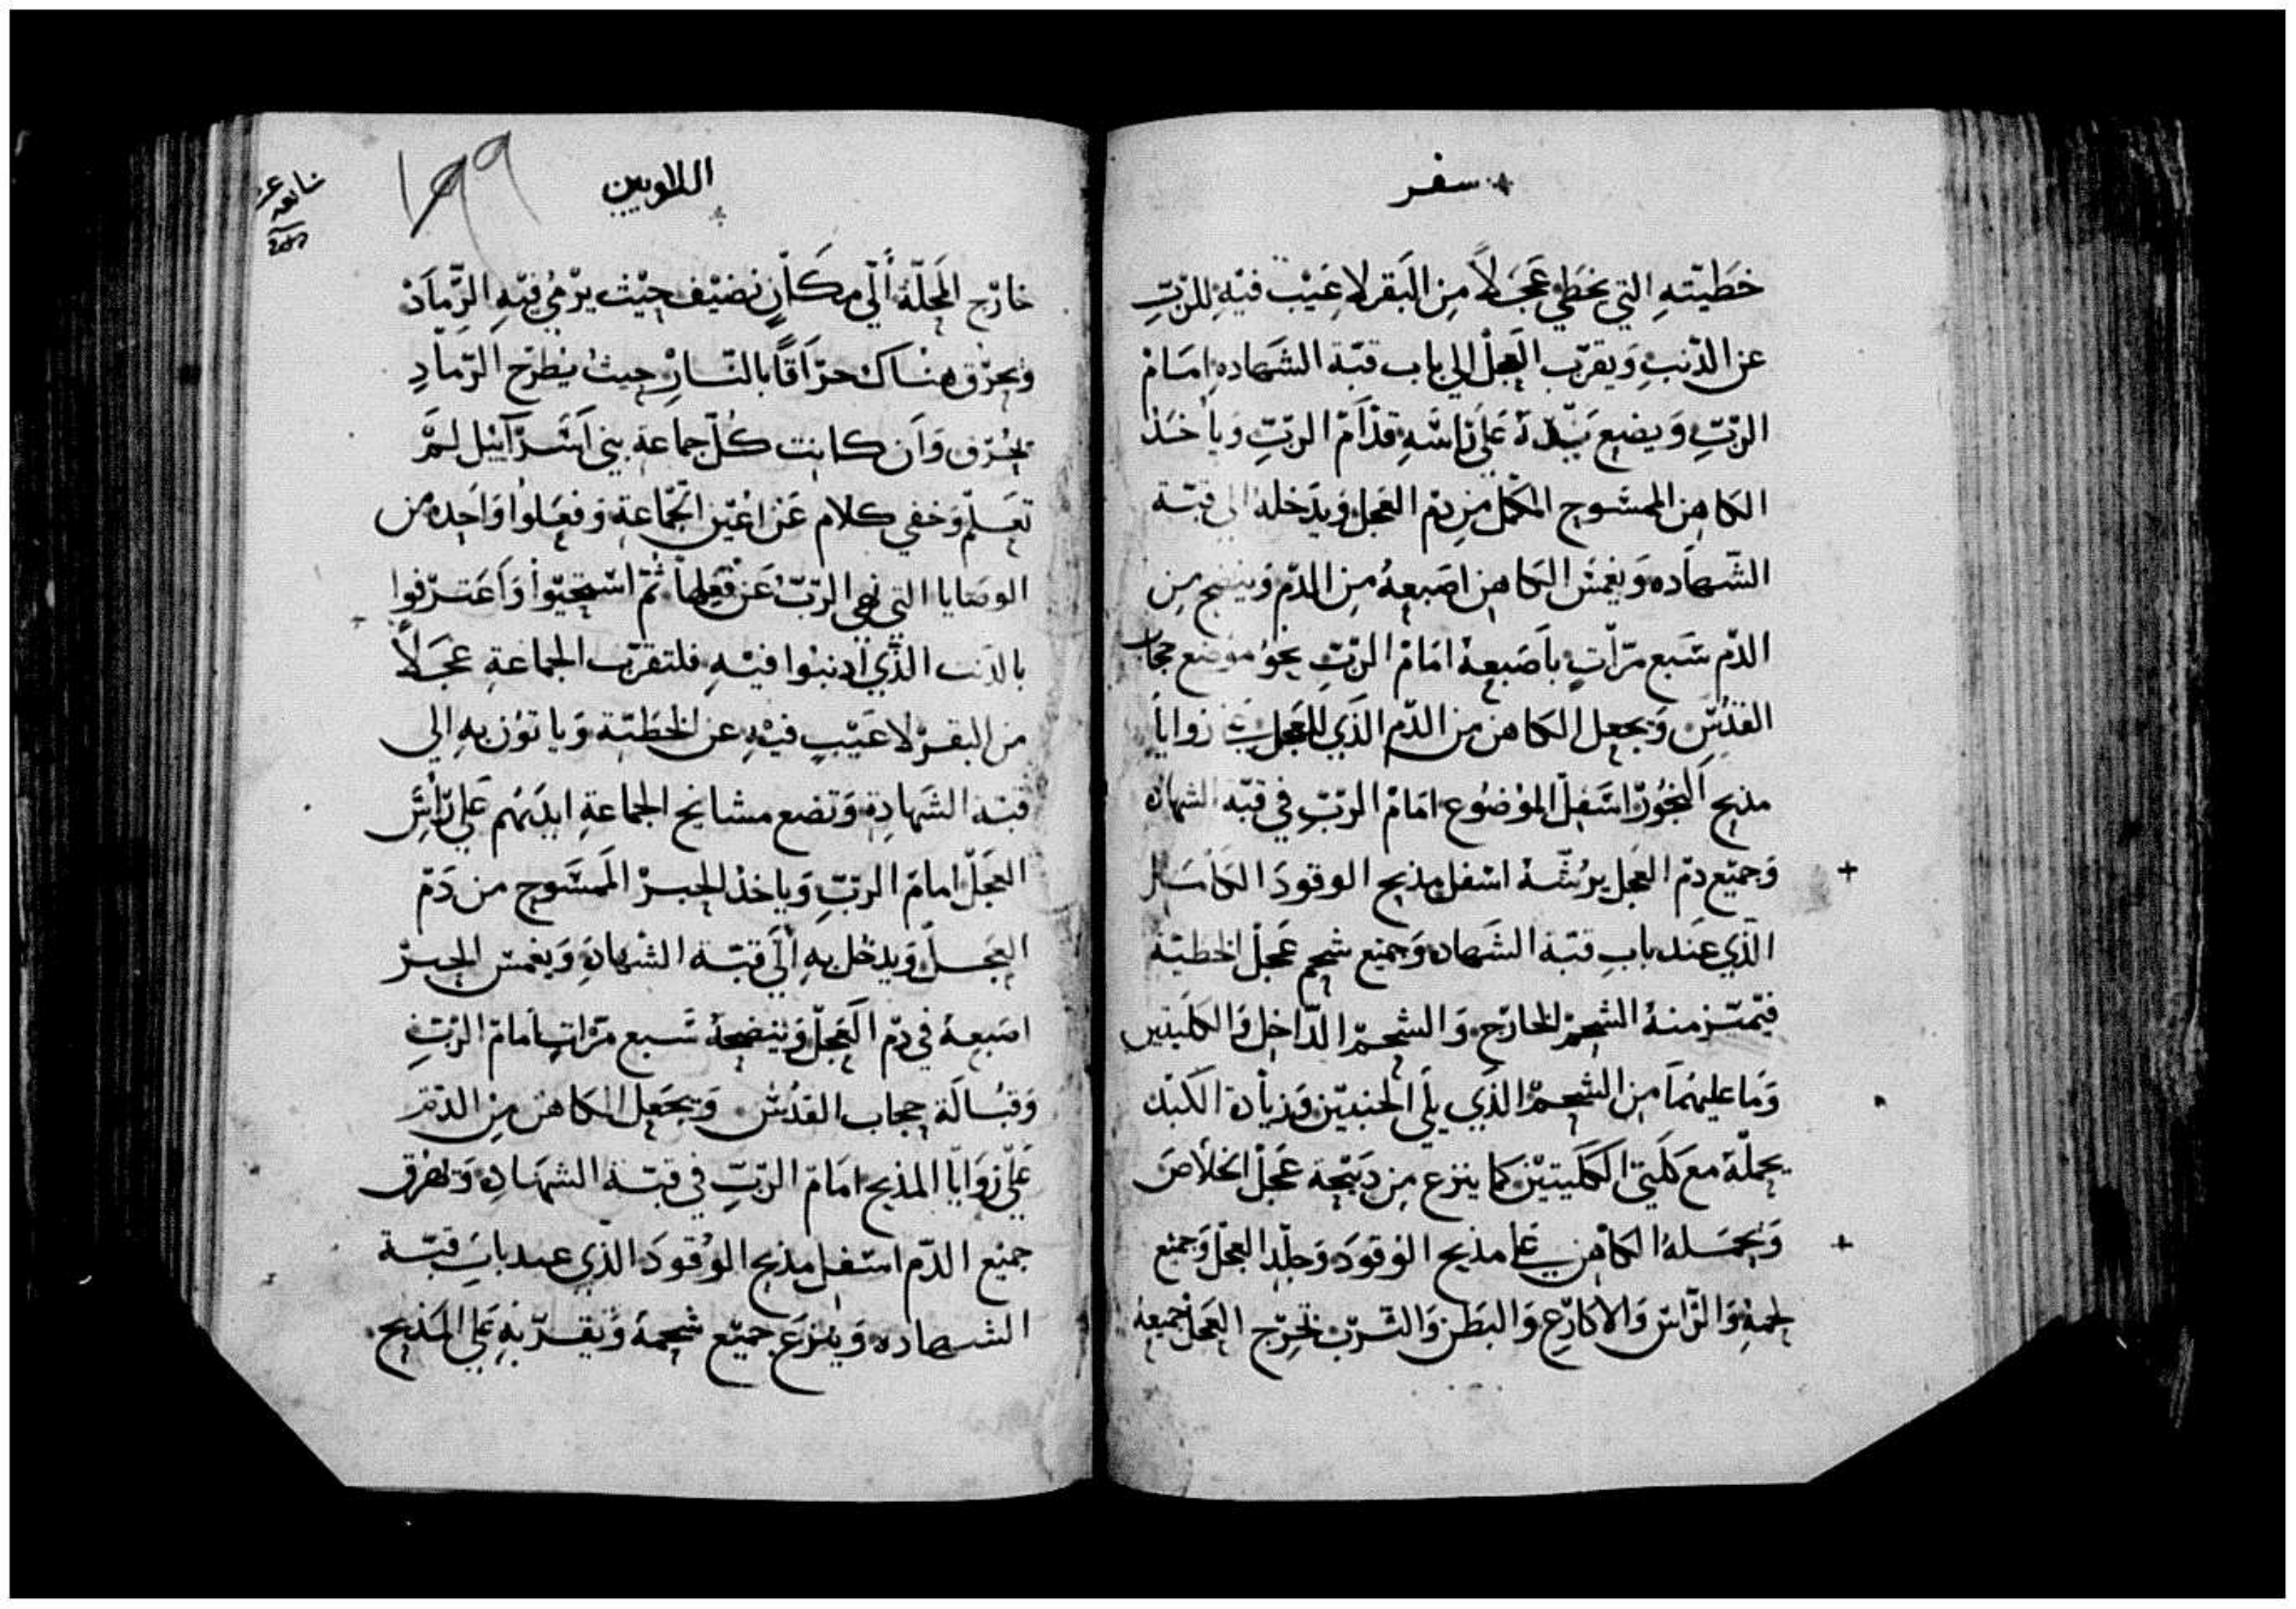 سفر
خطيته التي يخطي عجلاً من البقر لا عيب فيه للرب
عن الذنب ويقرب العجل الي باب قبة الشهاده امام
الرب ويضع يده علي راسه قدام الرب وياخذ
الكاهن الممسوح المكمل من دم العجل ويدخله الي قبة
الشهاده ويغمس الكاهن اصبعه من الدم وينضح من
الدم سبع مرات باصبعه امام الرب نحو موضع حجاب
القدس ويجعل الكاهن من الدم الذي للعجل علي زوايا
مذبح البخور اسفل الموضوع امام الرب في قبة الشهاده
وجميع دم العجل يرشه اسفل مذبح الوقود
الذي عند باب قبة الشهاده وجميع شحم عجل الخطية
منه الشحم الخارج والشحم الداخل والكليتين
وما عليهما من الشحم الذي يلي الجنبين وزيادة الكبد
يحمله مع كلتي الكليتين كما ينزع من ذبيحة عجل الخلاص
ويحمله الكاهن علي مذبح الوقود وجلد العجل وجميع
لحمه والراس والاكارع والبطن والترب تخرج العجل جميعه
اللاويين
١٩٩
خارج المحلة الي مكان نضيف حيث يرمي فيه الرماد
ويحرق هناك حراقاً بالنار حيث يطرح الرماد
تحرق وان كانت كل جماعة بني اسراييل لم
تعلم وخفي كلام عن اعين الجماعة وفعلوا واحده من
الوصايا التي نهي الرب عن فعلها ثم استحيوا واعترفوا
بالذنب الذي ادنبوا فيه فلتقرب الجماعة عجلاً
من البقر لا عيب فيه عن الخطية وياتون به الي
قبة الشهادة وتضع مشايخ الجماعة ايديهم علي راس
العجل امام الرب وياخذ الحبر الممسوح من دم
العجل ويدخل به الي قبة الشهادة ويغمس الحبر
اصبعه في دم العجل وينضحه سبع مرات امام الرب
وقبالة حجاب القدس ويجعل الكاهن من الدم
علي زوايا المذبح امام الرب في قبة الشهادة وتهرق
جميع الدم اسفل مذبح الوقود الذي عند باب قبة
الشهاده وينزع جميع شحمه ويقربه علي المذبح